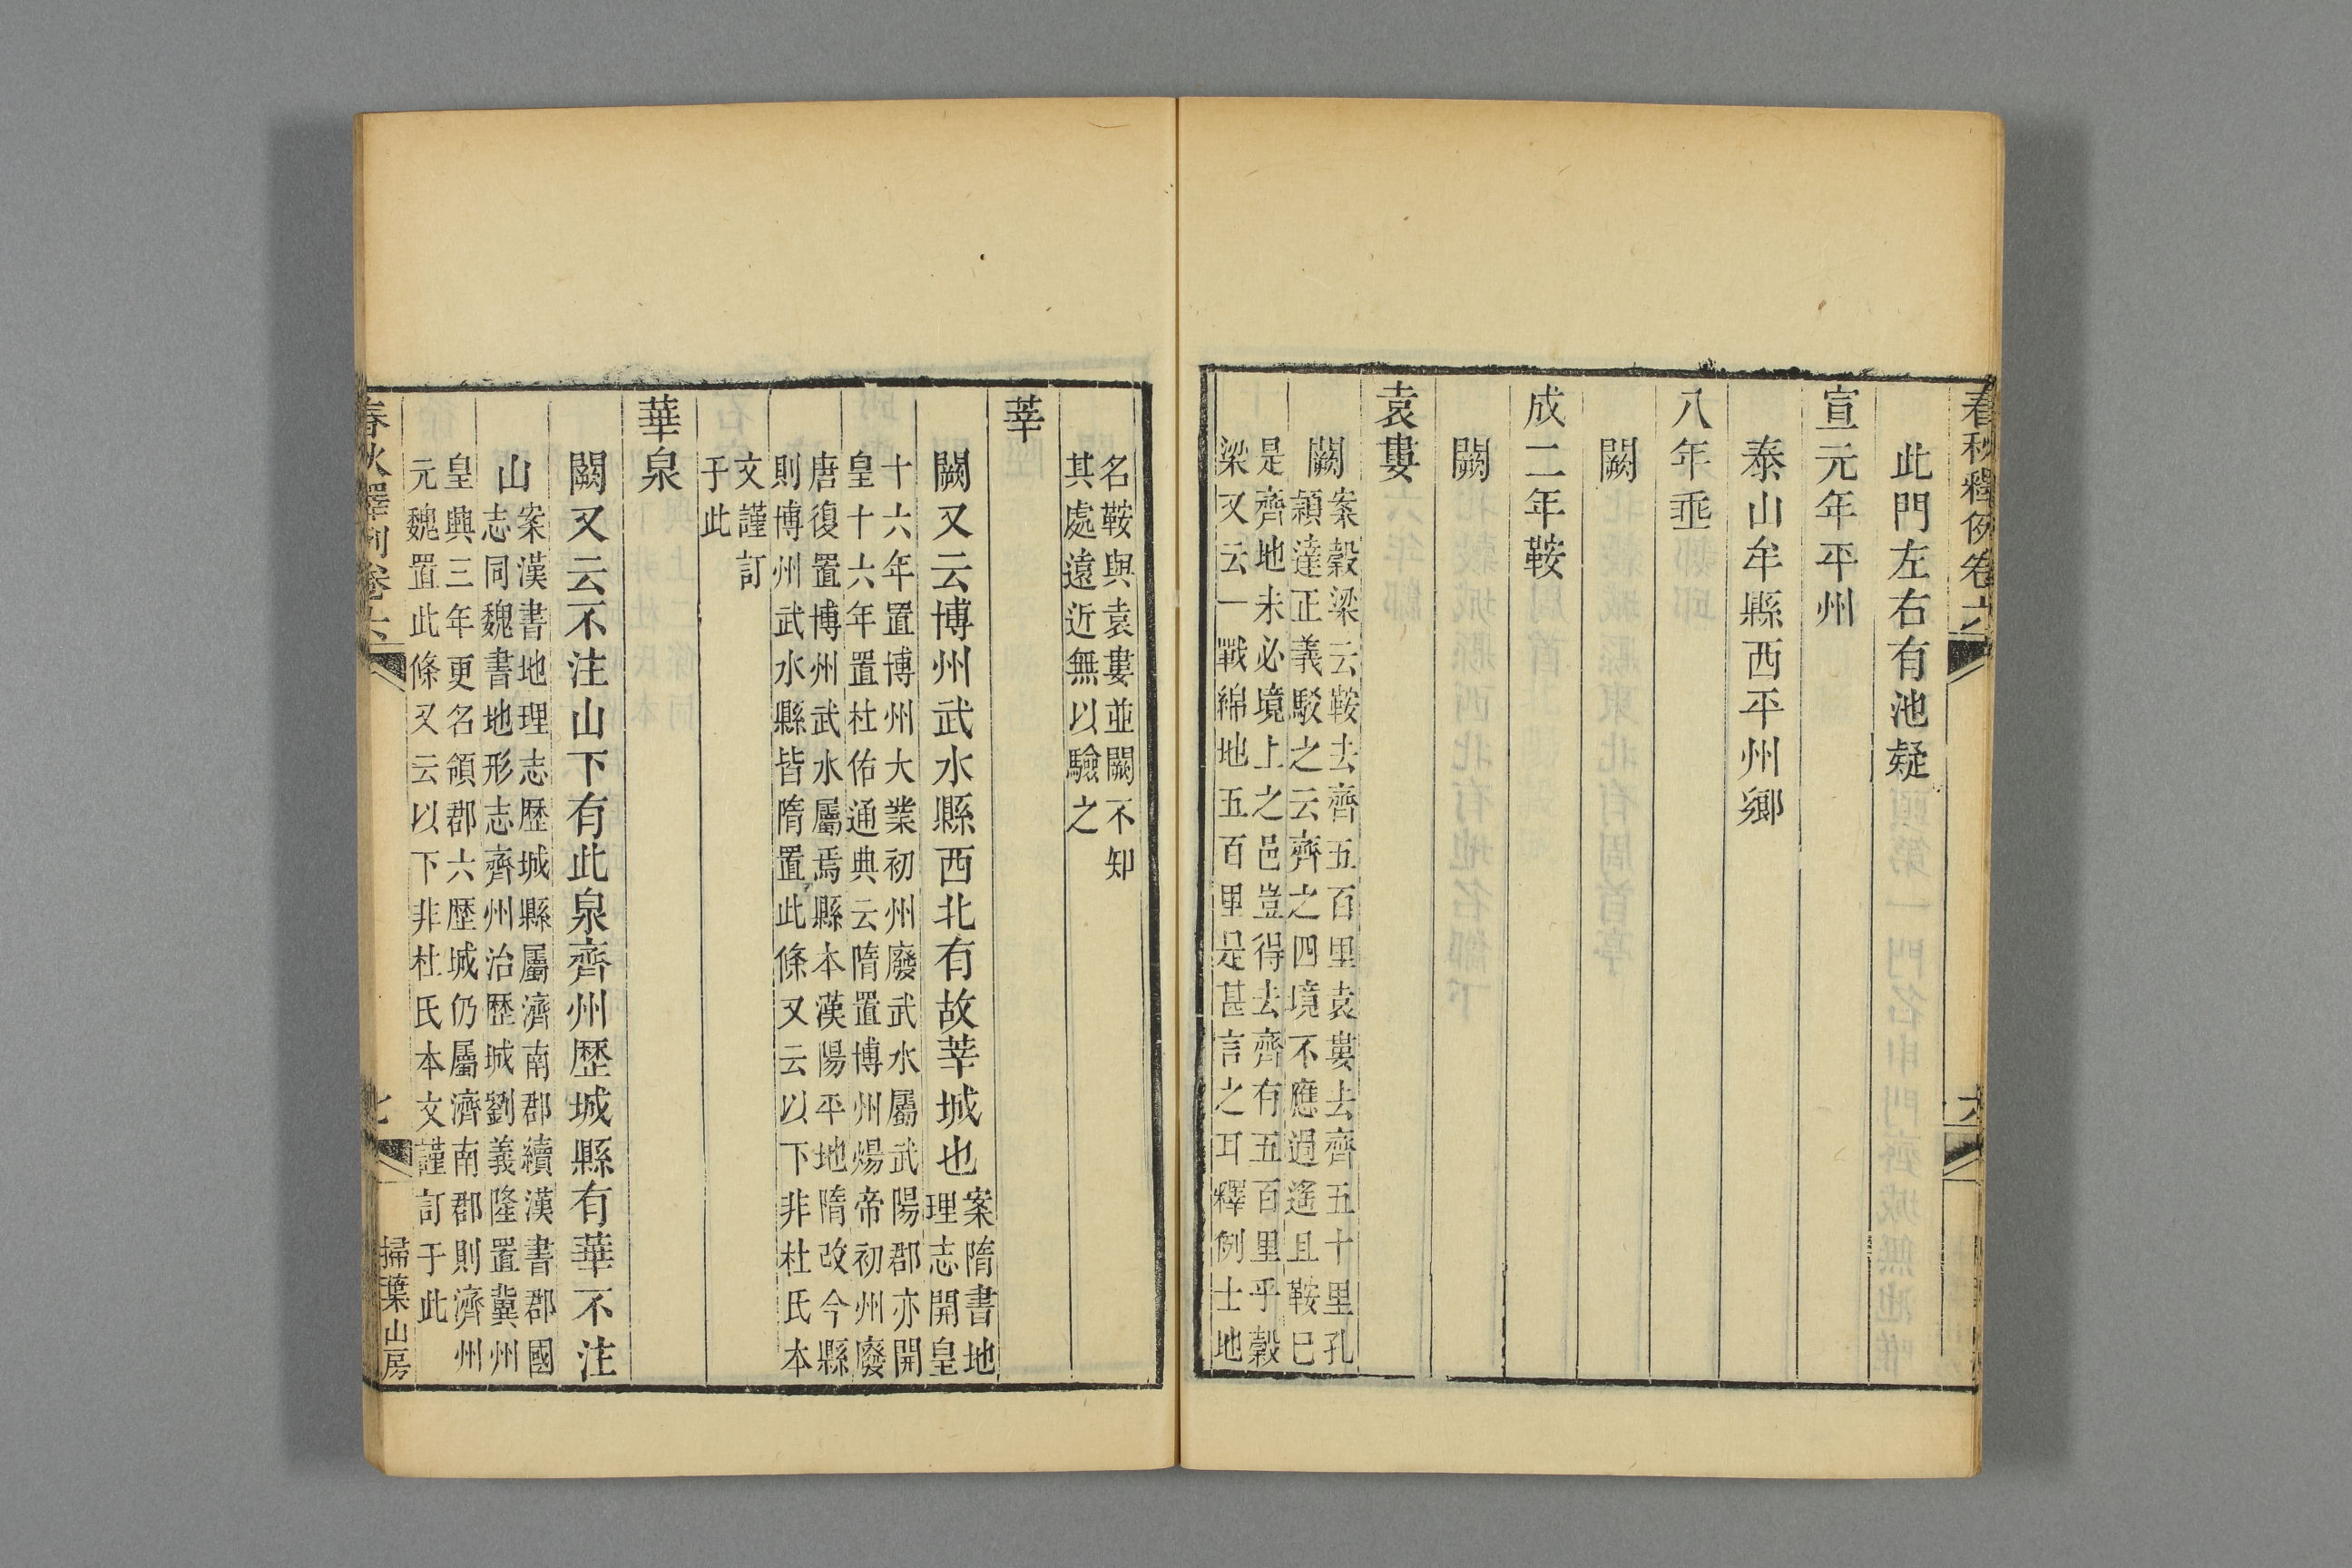 春秋釋例卷六
六
此門左右有池疑
宣元年平州
泰山牟縣西平州鄉
八年垂
闕
成二年鞍
闕
袁婁
闕
案穀梁云鞍去齊五百里袁婁去齊五十里孔
穎達正義駁之云齊之四境不應過遙且鞍巳
是齊地未必境上之邑豈得去齊有五百里乎穀
梁又云一戰綿地五百里是甚言之耳釋例土地
名鞍與袁婁並闕不知
其處遠近無以驗之
莘
闕又云博州武水縣西北有故莘城也
案隋書地
理志開皇
十六年置博州大業初州廢武水屬武陽郡亦開
皇十六年置杜佑通典云隋置博州煬帝初州廢
唐復置博州武水屬焉縣本漢陽平地隋改今縣
則博州武水縣皆隋置此條又云以下非杜氏本
文謹訂
于此
華泉
闕又云不注山下有此泉齊州歷城縣有華不注
山
案漢書地理志歷城縣屬濟南郡續漢書郡國
志同魏書地形志齊州治歷城劉義隆置冀州
皇興三年更名領郡六歷城仍屬濟南郡則濟州
元魏置此條又云以下非杜氏本文謹訂于此
春秋釋例卷六
七
掃葉山房